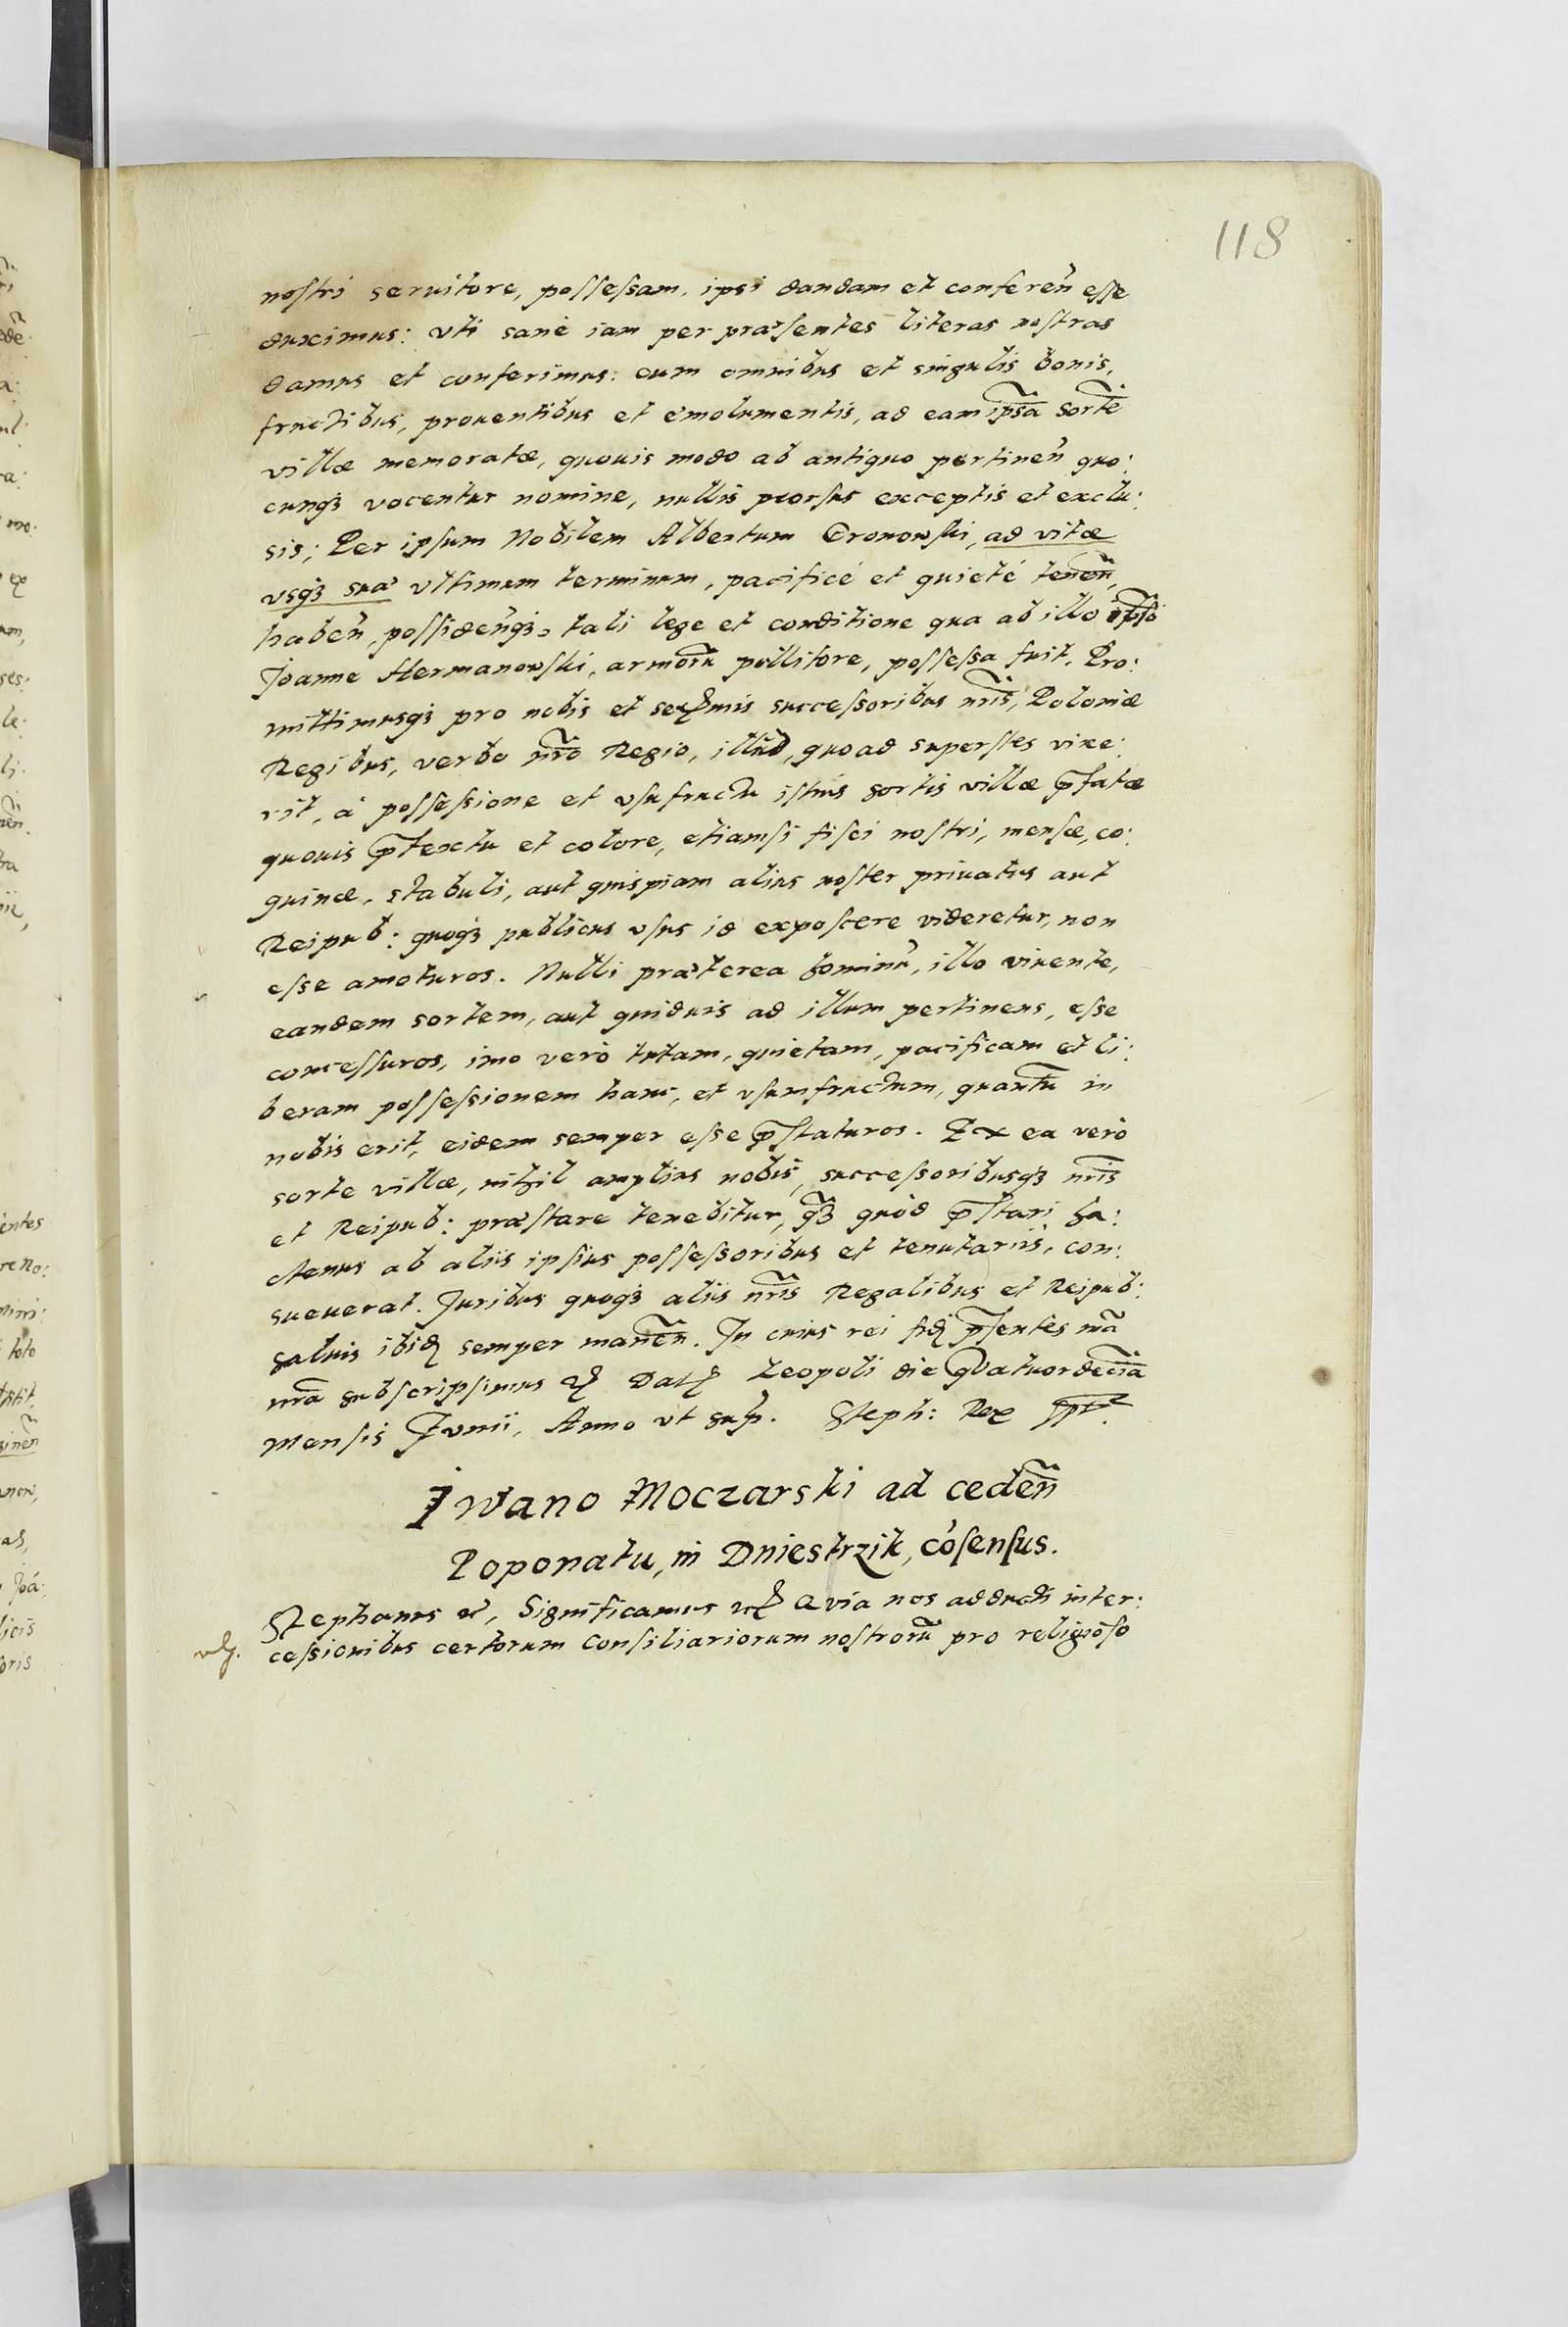 118
nostri seruitore, possessam, ipsi dandam et conferen̄ esse
duximus: vti sanè iam per præsentes literas nostras
damus et conferimus: cum omnibus et singulis bonis,
fructibus, prouentibus et emolumentis, ad eam ipsā sortē
villæ memoratæ, quouis modo ab antiquo pertinen̄ quo:
cunq3 vocentur nomine, nullis prorsus exceptis et exclu:
sis; Per ipsum Nobilem Albertum Gronowski, ad vitæ
vsq3 suæ vltimum terminum, pacificé et quieté tenen̄,
haben̄, possiden̄q3, tali lege et conditione qua ab illo ipso
Joanne Hermanowski, armorū pollitore, possessa fuit. Pro:
mittimusq3 pro nobis et serẽmis successoribus nr̄is, Poloniæ
Regibus, verbo nr̄o Regio, illud, quoad superstes vixe:
rit, à possessione et vsufructu istius sortis villæ p̄fatæ
quouis p̄textu et colore, etiamsi fisci nostri, mensæ, co:
quinæ, stabuli, aut quispiam alius noster priuatus aut
Reipub: quoq3 publicus vsus id exposcere videretur, non
esse amoturos. Nulli præterea hominū, illo viuente,
eandem sortem, aut quiduis ad illum pertinens, esse
concessuros, imo verò tutam, quietam, pacificam et li:
beram possessionem hanc, et vsumfructum, quantū in
nobis erit, eidem semper esse p̄staturos. Ex ea verò
sorte villæ, nihil amplius nobis, successoribusq3 nr̄is
et Reipub: præstare tenebitur, q̄3 quòd p̄stari ha:
ctenus ab aliis ipsius possessoribus et tenutariis, con:
sueuerat. Juribus quoq3 aliis nr̄is Regalibus et Reipub:
saluis ibid semper manen̄. In cuius rei fid p̄sentes mā
nr̄a subscripsimus Dat Leopoli die quatuordecīa
mensis Junii, Anno vt sup. Steph: Rex sp̄t
Iwano Moczarski ad ceden̄
Poponatu, in Dniestrzik, cōsensus.
Stephanus &c, Significamus Quia nos adducti inter:
cessionibus certorum Consiliariorum nostrorū pro religioso